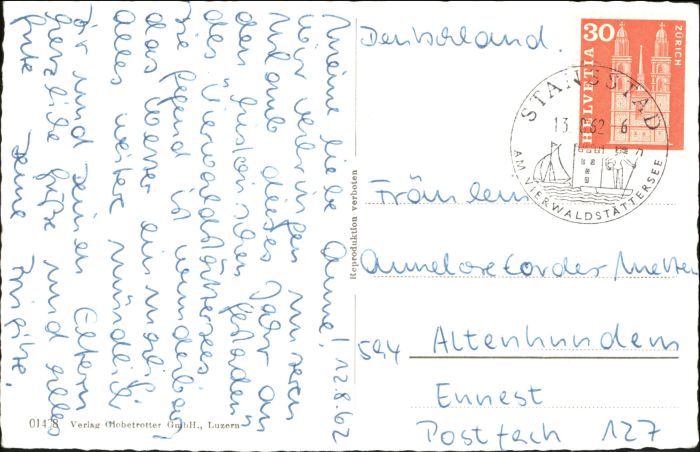 Meine liebe Anne! 12.8.62
Wir verbringen unseren
Urlaub dieses Jahr an
des "historischen Gestaden"
des Vierwaldstättersees.
Die Gegend ist wunderbar,
das Wasser ein mal
alles weitere mündlich
Dir und Deinen Eltern
herzliche Grüße und alles
Gute Deine Brigitte.
Deutschland.
30
HELVETIA
ZÜRICH
STANSSTAD
13. 62 6
AM VIERWALDSTÄTTERSEE
Reproduktion verboten
Fräulein
Annelore Cordes
594 Altenhundem
Ennest
Postfach 127
014 8 Verlag Globetrotter GmbH., Luzern